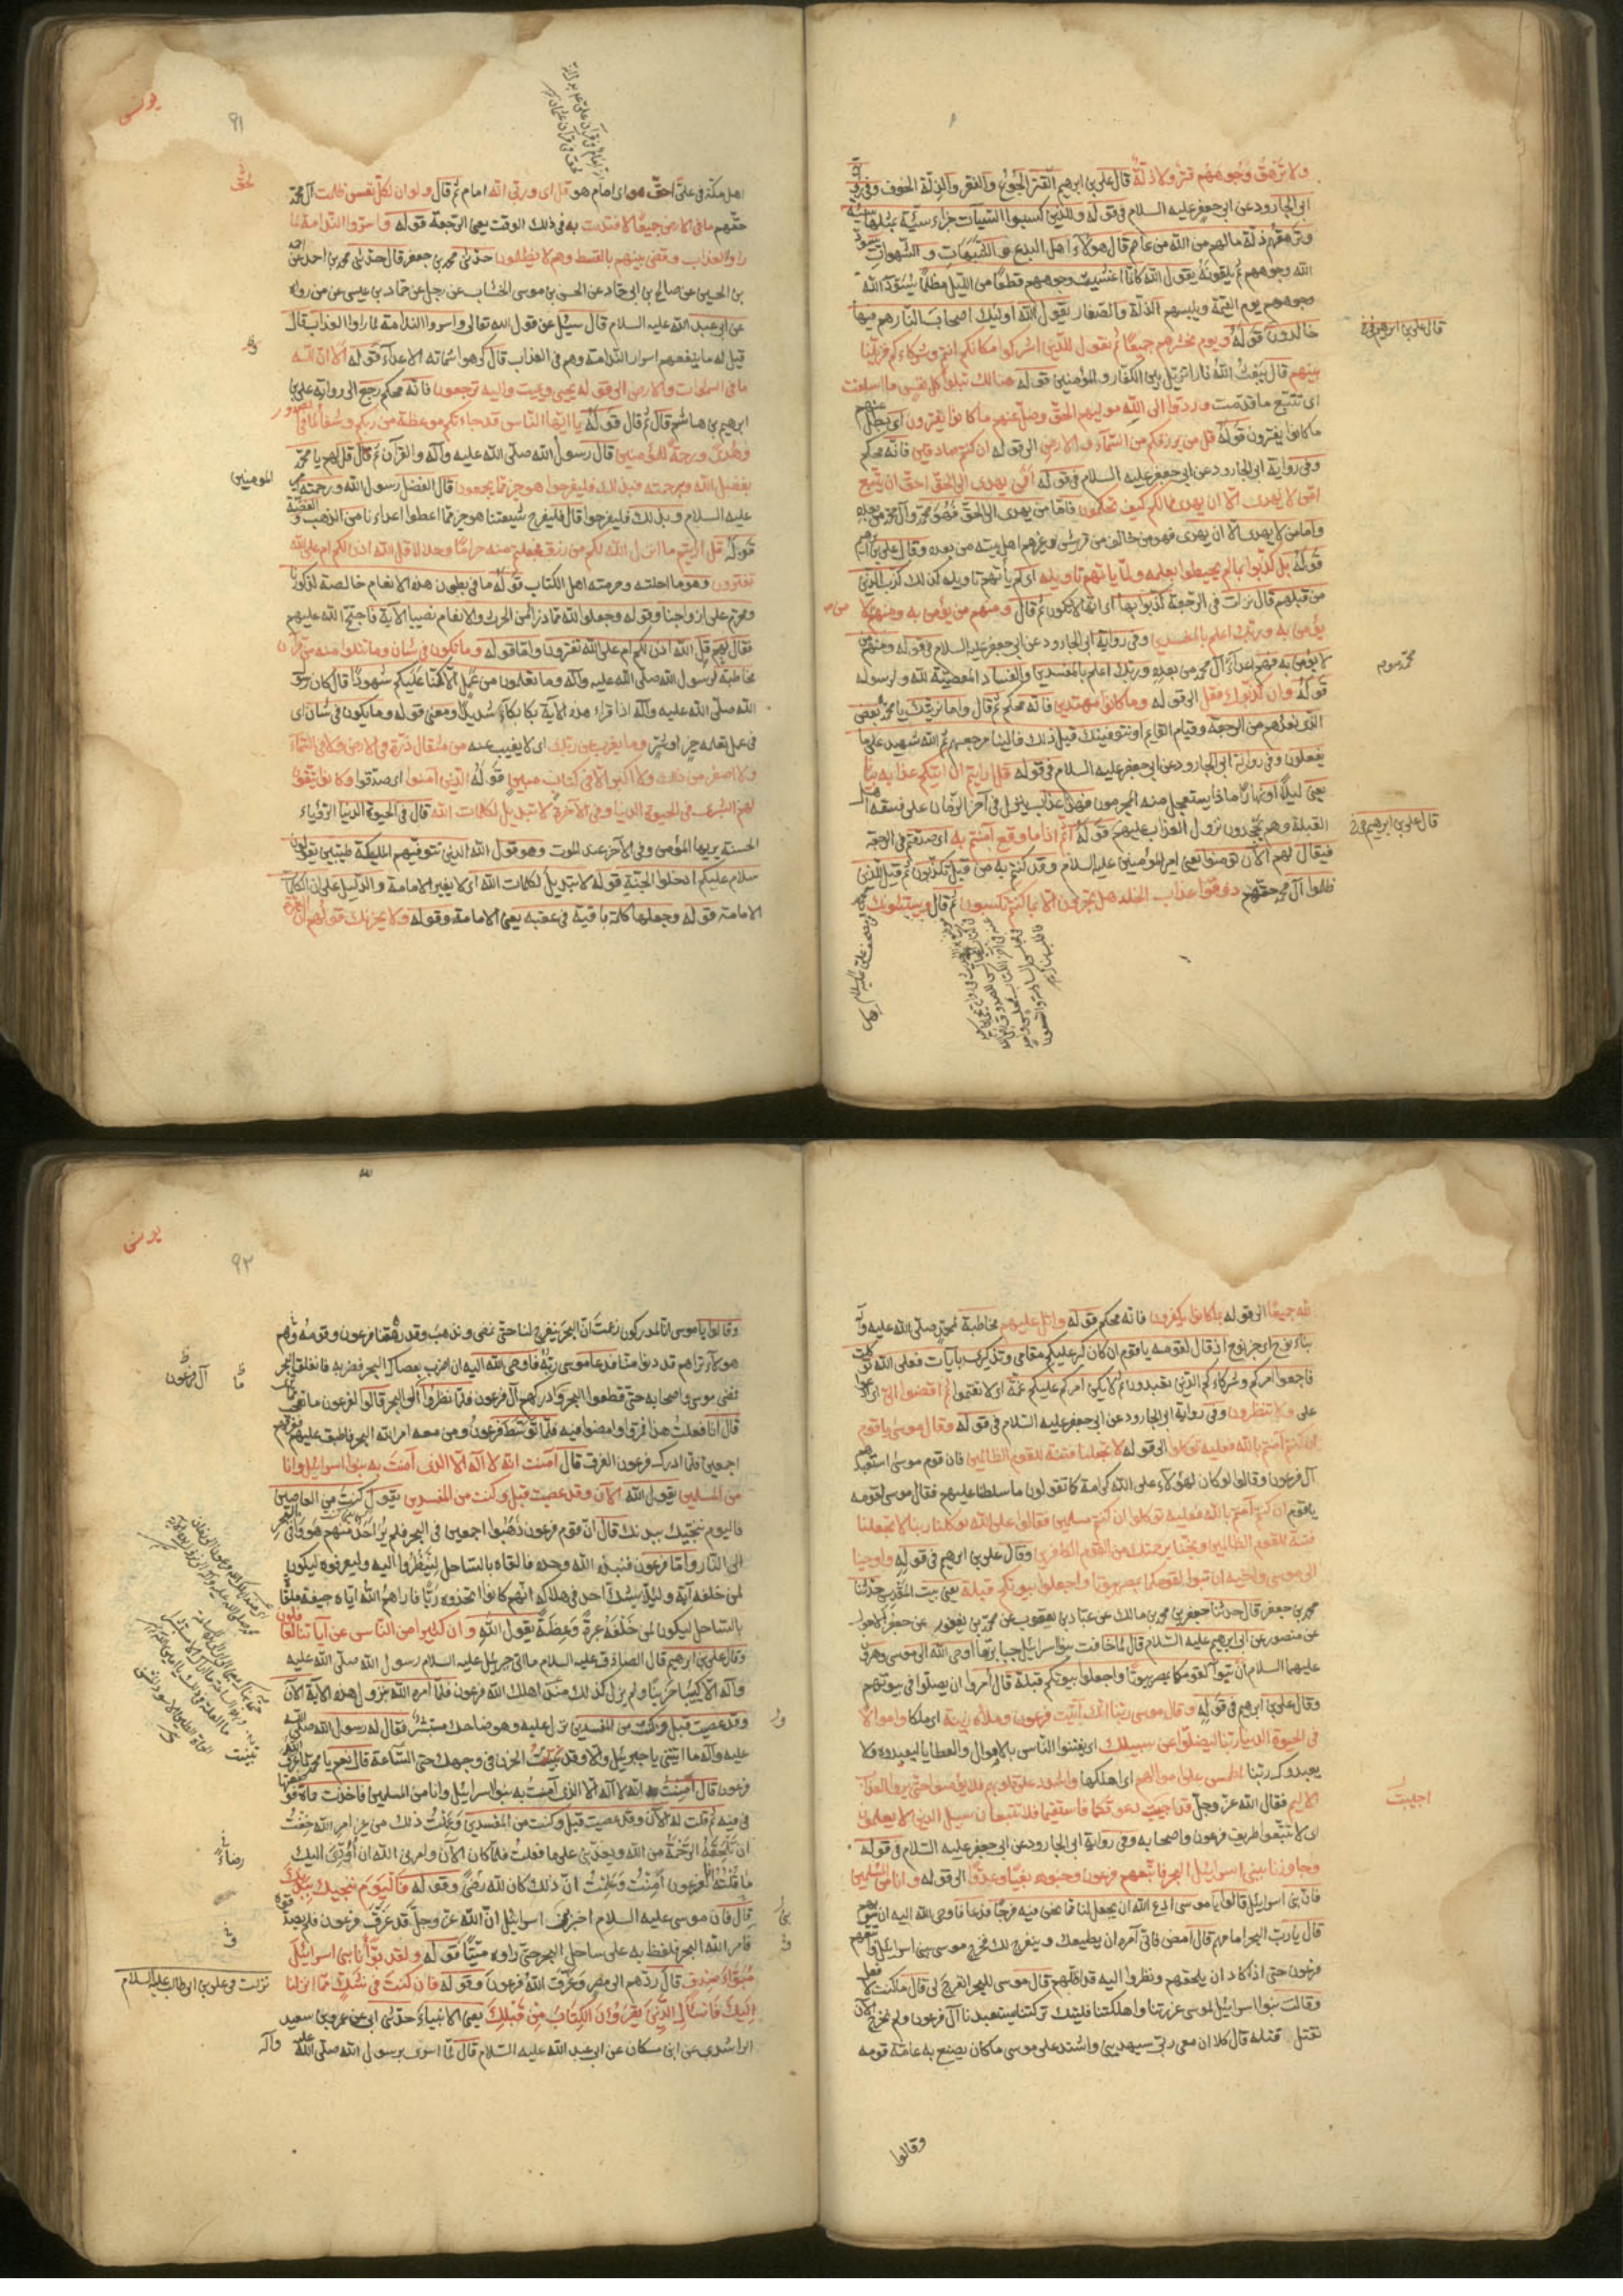 ولا ترهق وجوههم قتر ولا ذلة قال علي بن ابرهيم القتر الجوع والفقر والذلة الخوف وفي رواية
ابي الجارود عن ابي جعفر عليه السلام في قوله والذين كسبوا السيئات جزاء سيئة بمثلها
وترهقهم ذلة مالهم من الله من عاصم قال هؤلاء اهل البدع و الشبهات و الشهوات يسود
الله وجوههم ثم يلقونه يقول الله كانما اغشيت وجوههم قطعا من الليل مظلما يسود الله
وجوههم يوم القيمة ويلبسهم الذلة والصغار يقول الله اوليك اصحاب النار هم فيها
خالدون قوله ويوم نحشرهم جميعا ثم نقول للذين اشركوا مكانكم انتم وشركاءكم فزيلنا
قال علي بن ابرهيم في
بينهم قال يبعث الله نارا تزيل بين الكفار و المؤمنين قوله هنالك تبلوا كل نفس ما اسلفت
اى تتبع ما قدمت وردوا الى الله موليهم الحق وضل عنهم ما كانوا يفترون اى بطل عنهم
ما كانوا يفترون قوله قل من يرزقكم من السماء والارض الى قوله ان كنتم صادقين فانه محكم
وفي رواية ابي الجارود عن ابي جعفر عليه السلام في قوله افمن يهدى الى الحق احق ان يتبع
امن لا يهدى الا ان يهدى فمالكم كيف تحكمون فاما من يهدى الى الحق فهو محمد وآل محمد من بعده
واما من لا يهدى الا ان يهدى فهو من خالف من قريش وغيرهم اهل بيته من بعده وقال علي بن ابرهيم
قوله بل كذبوا بما لم يحيطوا بعلمه ولما ياتهم تاويله اى لم ياتهم تاويله كذلك كذب الذين
من قبلهم قال نزلت في الرجعة كذبوا بها اى انها لا يكون ثم قال ومنهم من يؤمن به ومنهم من لا
يؤمن به وربك اعلم بالمفسدين وفي رواية ابي الجارود عن ابي جعفر عليه السلام في قوله ومنهم من
لا يؤمن به فهم اعداء آل محمد من بعده وربك اعلم بالمفسدين والفساد المعصية لله ولرسوله
قوله وان كذبوك فقل الى قوله وما كانوا مهتدين فانه محكم ثم قال واما نرينك يا محمد بعض
الذى نعدهم من الرجعة وقيام القائم او نتوفينك قبل ذلك فالينا مرجعهم ثم الله شهيد على ما
يفعلون وفي رواية ابي الجارود عن ابي جعفر عليه السلام في قوله قل ارايتم ان اتيكم عذابه بياتا
يعني ليلا او نهارا ماذا يستعجل منه المجرمون فهذا عذاب ينزل في آخر الزمان على فسقة اهل
القبلة وهم يجحدون نزول العذاب عليهم قوله اثم اذا ما وقع آمنتم به اى صدقتم في الرجعة
قال علي بن ابرهيم في
فيقال لهم الآن تؤمنون يعني امير المؤمنين عليه السلام وقد كنتم به من قبل تكذبون ثم قيل للذين
ظلموا آل محمد حقهم ذوقوا عذاب الخلد هل تجزون الا بما كنتم تكسبون ثم قال ويستنبئونك يا محمد
يونس
٩١
اهل مكة في علي احق هو اى امام هو قل اى وربي انه امام ثم قال ولو ان لكل نفس ظلمت آل محمد
حقهم ما في الارض جميعا لافتدت به في ذلك الوقت يعني الرجعة قوله واسروا الندامة لما
راوا العذاب وقضى بينهم بالقسط وهم لا يظلمون حدثني محمد بن جعفر قال حدثني محمد بن احمد عن احمد
بن الحسين عن صالح بن ابي حماد عن الحسن بن موسى الخشاب عن رجل عن حماد بن عيسى عن من رواه
عن ابي عبد الله عليه السلام قال سئل عن قول الله تعالى واسروا الندامة لما راوا العذاب قال
قيل له ما ينفعهم اسرار الندامة وهم في العذاب قال كرهوا شماتة الاعداء قوله الا ان لله
ما في السموات والارض الى قوله يحيي ويميت واليه ترجعون فانه محكم رجع الى رواية علي بن
ابرهيم بن هاشم قال ثم قال قوله يا ايها الناس قد جاءتكم موعظة من ربكم وشفاء لما في الصدور
وهدى ورحمة للمؤمنين قال رسول الله صلى الله عليه وآله والقرآن ثم قال قل لهم يا محمد
بفضل الله وبرحمته فبذلك فليفرحوا هو خير مما يجمعون قال الفضل رسول الله ورحمته امير
المومنين
عليه السلام وبذلك فليفرحوا قال فليفرح شيعتنا هو خير مما اعطوا اعداءنا من الذهب والفضة
قوله قل ارايتم ما انزل الله لكم من رزق فجعلتم منه حراما وحلالا قل الله اذن لكم ام على الله
تفترون وهو ما احلته وحرمته اهل الكتاب قوله ما في بطون هذه الانعام خالصة لذكورنا
ومحرم على ازواجنا وقوله وجعلوا لله مما ذرأ من الحرث والانعام نصيبا الآية فاحتج الله عليهم
فقال لهم قل الله اذن لكم ام على الله تفترون واما قوله وما تكون في شان وما تتلوا منه من قرآن
مخاطبة لرسول الله صلى الله عليه وآله وما تعملون من عمل الا كنا عليكم شهودا قال كان رسول
الله صلى الله عليه وآله اذا قراء هذه الآية بكا بكاء شديدا ومعنى قوله وما يكون في شان اى
في عمل نعمله خيرا وشر وما يعزب عن ربك اى لا يغيب عنه من مثقال ذرة في الارض ولا في السماء
ولا اصغر من ذلك ولا اكبر الا في كتاب مبين قوله الذين آمنوا اى صدقوا وكانوا يتقون
لهم البشرى في الحيوة الدنيا وفي الآخرة لا تبديل لكلمات الله قال في الحيوة الدنيا الرؤياء
الحسنة يريها المؤمن وفي الآخرة عند الموت وهو قول الله الذين تتوفيهم المليكة طيبين يقولون
سلام عليكم ادخلوا الجنة قوله لا تبديل لكلمات الله اى لا يغير الامامة والدليل على ان الكلمات
الامامة قوله وجعلها كلمة باقية في عقبه يعني الامامة وقوله ولا يحزنك قولهم ان العزة
لله جميعا الى قوله بما كانوا يكفرون فانه محكم قوله واتل عليهم مخاطبة لمحمد صلى الله عليه وآله
نباء نوح اى خبر نوح اذ قال لقومه يا قوم ان كان كبر عليكم مقامي وتذكيري بآيات فعلى الله توكلت
فاجمعوا امركم وشركاءكم الذين تعبدون ثم لا يكن امركم عليكم غمة اى لا تغتموا ثم اقضوا الى اى ادعوا
على ولا تنظرون وفي رواية ابي الجارود عن ابي جعفر عليه السلام في قوله وقال موسى يا قوم
ان كنتم آمنتم بالله فعليه توكلوا الى قوله لا تجعلنا فتنة للقوم الظالمين فان قوم موسى استعبدهم
آل فرعون وقالوا لو كان لهؤلاء على الله كرامة كما تقولون ما سلطنا عليهم فقال موسى لقومه
يا قوم ان كنتم آمنتم بالله فعليه توكلوا ان كنتم مسلمين فقالوا على الله توكلنا ربنا لا تجعلنا
فتنة للقوم الظالمين ونجنا برحمتك من القوم الكافرين وقال علي بن ابرهيم في قوله واوحينا
الى موسى واخيه ان تبوا لقومكما بمصر بيوتا واجعلوا بيوتكم قبلة يعني بيت المقدس حدثنا
محمد بن جعفر قال حدثنا جعفر بن محمد بن مالك عن عباد بن يعقوب عن محمد بن يعفور عن جعفر الاحول
عن منصور عن ابي ابرهيم عليه السلام قال لما خافت بنو اسرائيل جبابرتها اوحى الله الى موسى وهرون
عليهما السلام ان تبوا لقومكما بمصر بيوتا واجعلوا بيوتكم قبلة قال امروا ان يصلوا في بيوتهم
وقال علي بن ابرهيم في قوله وقال موسى ربنا انك آتيت فرعون وملأه زينة اى ملكا واموالا
في الحيوة الدنيا ربنا ليضلوا عن سبيلك اى يفتنوا الناس بالاموال والعطايا ليعبدوه ولا
يعبدوك ربنا اطمس على اموالهم اى اهلكها واشدد على قلوبهم فلا يؤمنوا حتى يروا العذاب
الاليم فقال الله عز وجل قد اجيبت دعوتكما فاستقيما ولا تتبعان سبيل الذين لا يعلمون
اجيبت
اى لا تتبعوا طريق فرعون واصحابه وفي رواية ابي الجارود عن ابي جعفر عليه السلام في قوله
وجاوزنا ببني اسرائيل البحر فاتبعهم فرعون وجنوده بغيا وعدوا الى قوله وانا من المسلمين
فان بني اسرائيل قالوا يا موسى ادع الله ان يجعل لنا مما نحن فيه فرجا فدعا فاوحى الله اليه ان سر بهم
قال يا رب البحر امامهم قال امض فاني آمره ان يطيعك وينفرج لك فخرج موسى ببني اسرائيل واتبعهم
فرعون حتى اذا كاد ان يلحقهم ونظروا اليه قد اظلهم قال موسى للبحر انفرج لي قال ما كنت لافعل
وقالت بنوا اسرائيل لموسى غررتنا واهلكتنا فليتك تركتنا يستعبدنا آل فرعون ولم نخرج الآن
نقتل قتله قال كلا ان معي ربي سيهدين واشتد على موسى ما كان يصنع به عامة قومه
وقالوا
يونس
٩٢
وقالوا يا موسى انا لمدركون زعمت ان البحر ينفرج لنا حتى نمضى ونذهب وقد رهقنا فرعون وقومه وهم
هولاء نراهم قد دنوا منا فدعا موسى ربه فاوحى الله اليه ان اضرب بعصاك البحر فضربه فانفلق البحر
آل فرعون
فمضى موسى واصحابه حتى قطعوا البحر وادركهم آل فرعون فلما نظروا الى البحر قالوا لفرعون ما تعجب
قال انا فعلت هذا فمروا وامضوا فيه فلما توسط فرعون ومن معه امر الله البحر فاطبق عليهم فغرقهم
اجمعين فلما ادرك فرعون الغرق قال آمنت انه لا اله الا الذى آمنت به بنوا اسرائيل وانا
من المسلمين يقول الله الآن وقد عصيت قبل وكنت من المفسدين يقول كنت من العاصين
فاليوم ننجيك ببدنك قال ان قوم فرعون ذهبوا اجمعين في البحر فلم ير احد منهم هووا في البحر
الى النار واما فرعون فنبذه الله وحده فالقاه بالساحل لينظروا اليه وليعرفوه ليكون
لمن خلفه آية ولئلا يشك احد في هلاكه انهم كانوا اتخذوه ربا فاراهم الله اياه جيفة ملقاة
بالساحل ليكون لمن خلفه عبرة وعظة يقول الله وان كثيرا من الناس عن آياتنا لغافلون
وقال علي بن ابرهيم قال الصادق عليه السلام ما اتى جبرئيل عليه السلام رسول الله صلى الله عليه
وآله الا كئيبا حزينا ولم يزل كذلك منذ اهلك الله فرعون فلما امره الله بنزول هذه الآية الآن
وقد عصيت قبل وكنت من المفسدين نزل عليه وهو ضاحك مستبشر فقال له رسول الله صلى الله
عليه وآله ما اتيتني يا جبرئيل الا وقد تبينت الحزن في وجهك حتى الساعة قال نعم يا محمد لما غرق الله
فرعون قال آمنت انه لا اله الا الذى آمنت به بنوا اسرائيل وانا من المسلمين فاخذت حماة فوضعتها
في فيه ثم قلت له الآن وقد عصيت قبل وكنت من المفسدين وعملت ذلك من غير امر الله خفت
ان تلحقه الرحمة من الله ويعذبني على ما فعلت فلما كان الآن وامرني الله ان اؤدى اليك
ما قلته انا لفرعون آمنت وعلمت ان ذلك كان لله رضى وقوله فاليوم ننجيك ببدنك
قال فان موسى عليه السلام اخبر بني اسرائيل ان الله عز وجل قد غرق فرعون فلم يصدقوه
فامر الله البحر فلفظ به على ساحل البحر حتى راوه ميتا قوله ولقد بوأنا بني اسرائيل
مبوأ صدق قال ردهم الى مصر وغرق الله فرعون وقوله فان كنت في شك مما انزلنا
نزلت في علي بن ابي طالب عليه السلام
اليك فاسئال الذين يقرؤن الكتاب من قبلك يعني الانبياء حدثني ابي عن عمرو بن سعيد
الراشدي عن ابن مسكان عن ابي عبد الله عليه السلام قال لما اسرى برسول الله صلى الله عليه
وآله